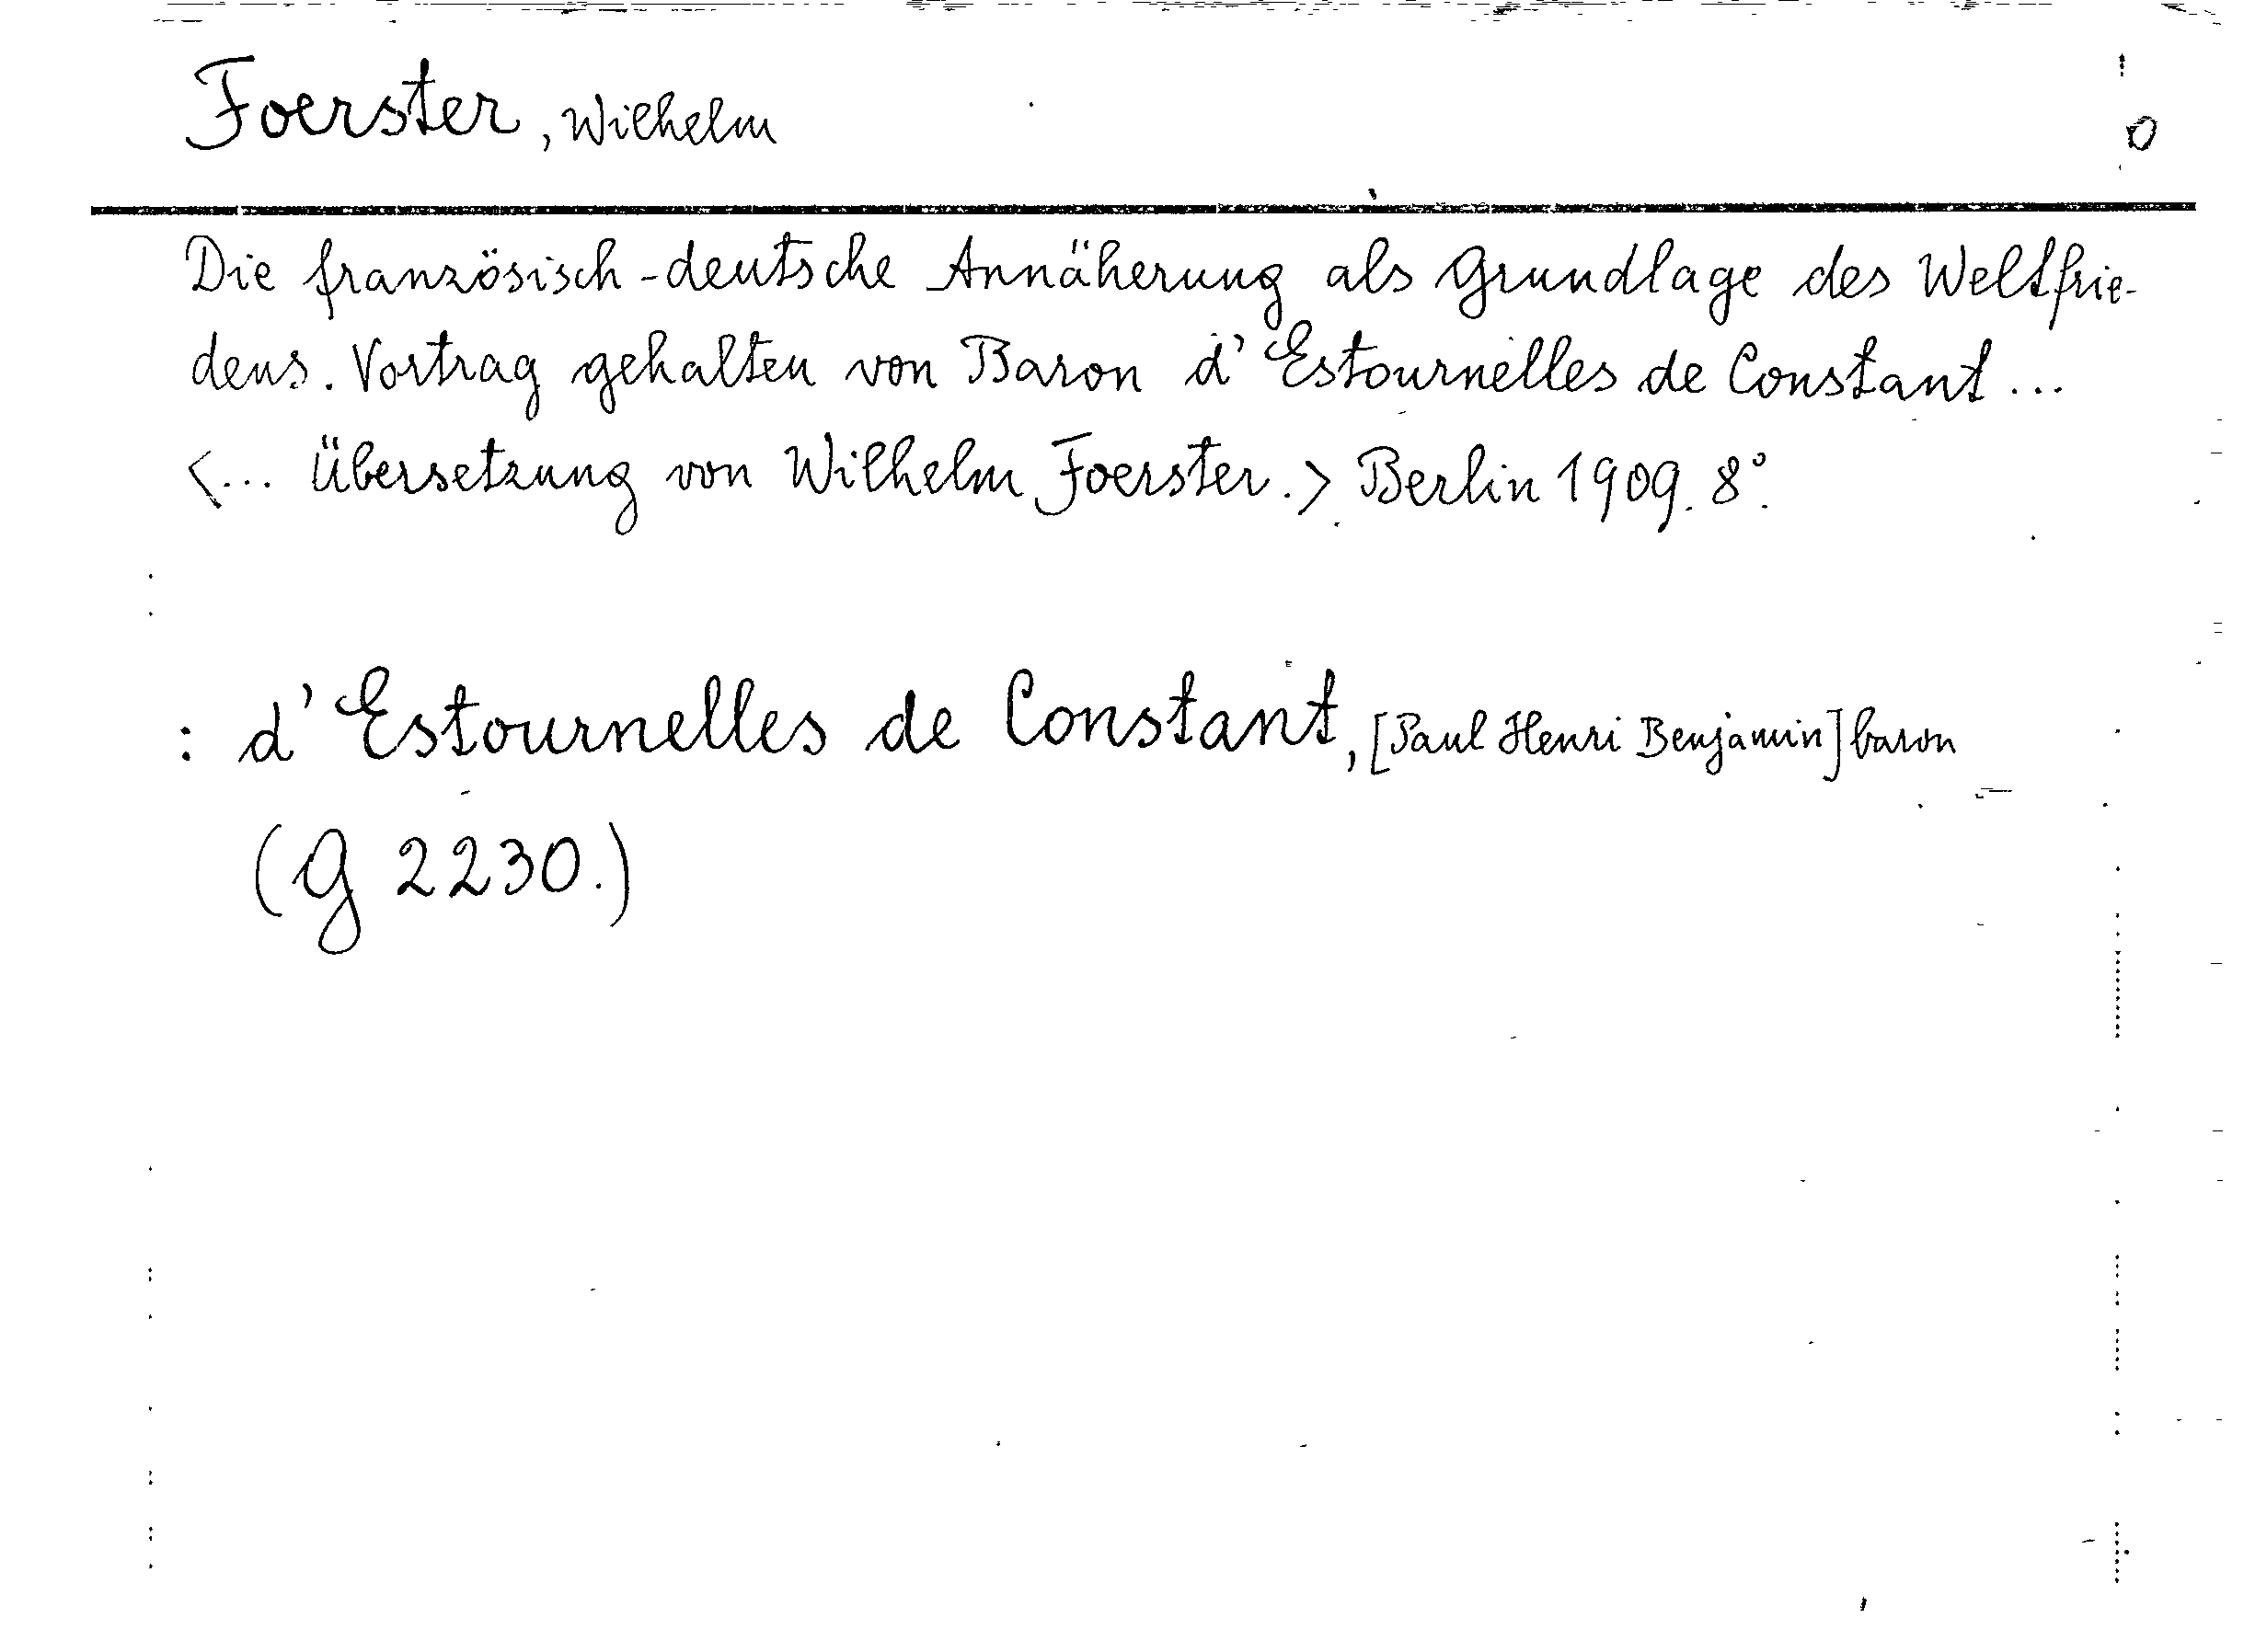 Foerster, Wilhelm
0
Die französisch-deutsche Annäherung als Grundlage des Weltfrie-
dens. Vortrag gehalten von Baron d'Estournelles de Constant ...
<... Übersetzung von Wilhelm Foerster.> Berlin 1909. 8°.
: d'Estournelles de Constant, [Paul Henri Benjamin] baron
(G 2230.)